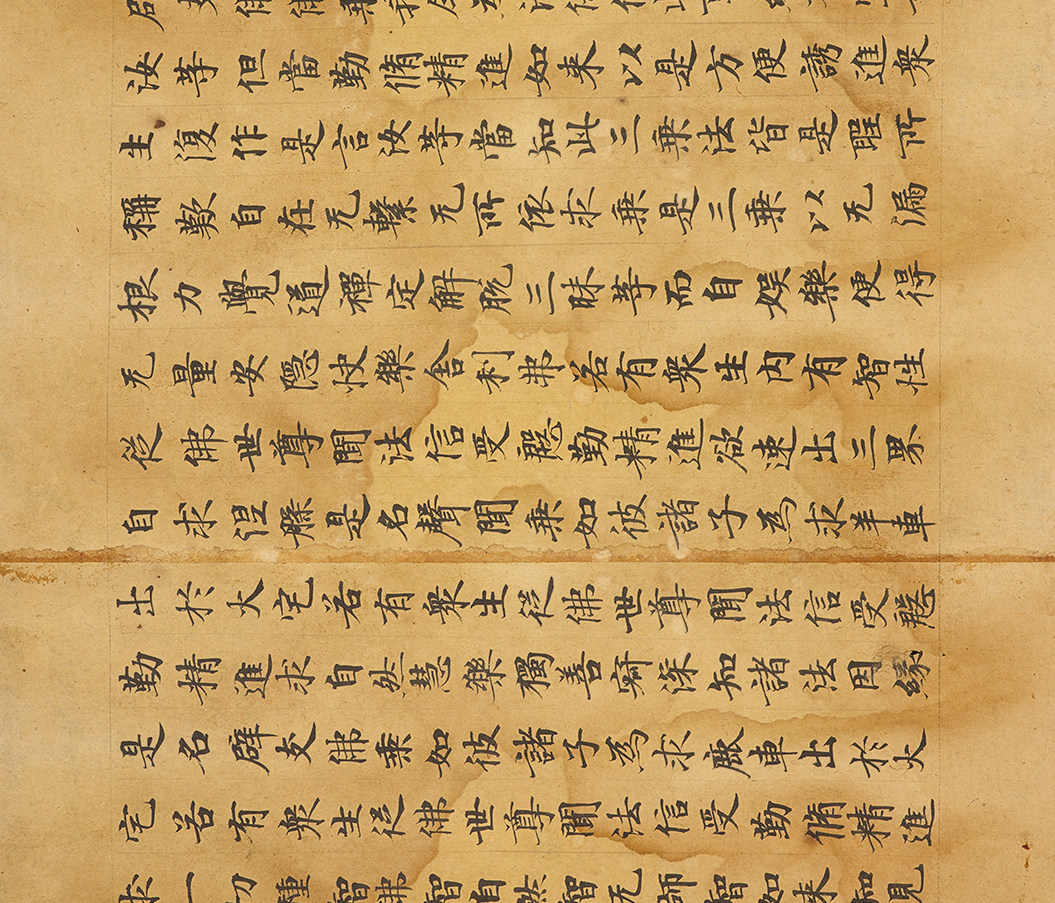 汝等但當勤脩精進如来以是方便誘進衆
生復作是言汝等當知此三乗法皆是聖所
稱歎自在无繫无所依求乗是三乗以无漏
根力覺道禪定解脫三昧等而自娱樂便得
无量安隱快樂舍利弗若有衆生内有智性
從佛世尊聞法信受慇勤精進欲速出三界
自求涅槃是名聲聞乗如彼諸子為求羊車
出於火宅若有衆生從佛世尊聞法信受慇
勤精進求自然慧樂獨善寂深知諸法因緣
是名辟支佛乗如彼諸子為求鹿車出於火
宅若有衆生從佛世尊聞法信受勤脩精進
求一切種智佛智自然智无師智如来知見